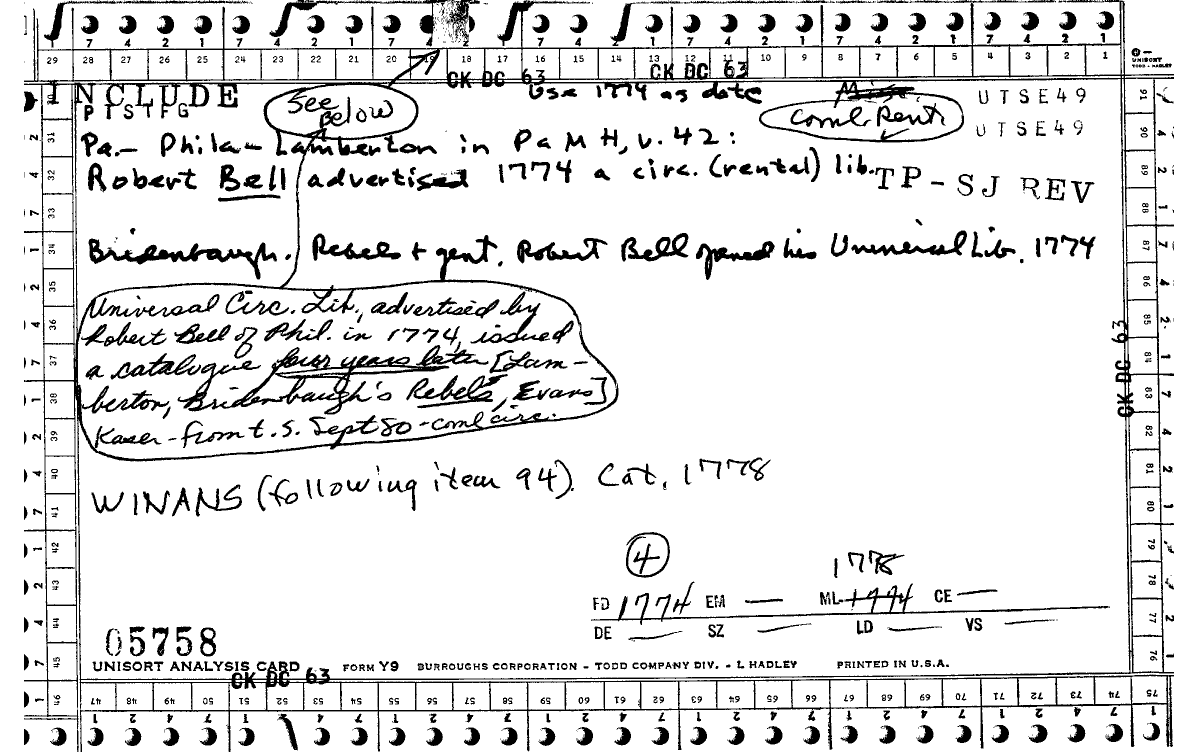 7 4 2 1 7 4 2 1 7 4 2 1 7 4 2 1 7 4 2 1 7 4 2 1
29 28 27 26 25 24 23 22 21 20 19 18 17 16 15 14 13 12 11 10 9 8 7 6 5 4 3 2 1
UNISORT
TODD - HADLEY
CK DC 63 CK DC 63
INCLUDE
See Below
Use 1774 as date
UTSE49
coml. Rent
UTSE49
Pa.- Phila- Lamberton in Pa M H, v. 42:
Robert Bell advertised 1774 a circ. (rental) lib.
TP-SJ REV
Bridenbaugh. Rebels + gent. Robert Bell opened his Universal Lib. 1774
Universal Circ. Lib., advertised by
Robert Bell of Phil. in 1774, issued
a catalogue four years later [Lam-
berton, Bridenbaugh's Rebels, Evans]
Kaser-from t.s. Sept 80-coml circ.
CK DC 63
WINANS (following item 94). Cat. 1778
4
1778
FD 1774 EM — ML 1774 CE —
DE — SZ — LD — VS —
05758
UNISORT ANALYSIS CARD FORM Y9 BURROUGHS CORPORATION - TODD COMPANY DIV. - L HADLEY PRINTED IN U.S.A.
CK DC 63
47 48 49 50 51 52 53 54 55 56 57 58 59 60 61 62 63 64 65 66 67 68 69 70 71 72 73 74 75